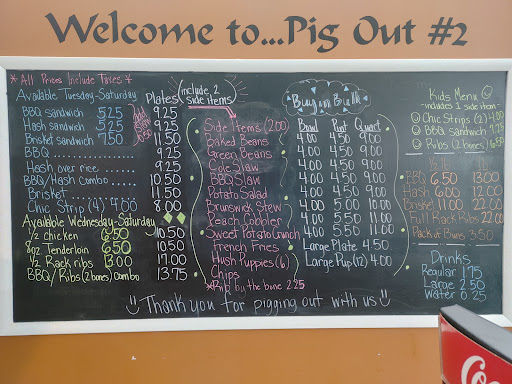 Welcome to...Pig Out #2
*All Prices Include Taxes*
Available Tuesday-Saturday
Plates
BBQ sandwich 5.25 9.25
Hash sandwich 5.25 9.25
Brisket sandwich 7.50 11.50
BBQ 9.25
Hash over rice 9.25
BBQ/Hash Combo 10.50
Brisket 11.50
Chic Strip (4) 4.00 8.00
Available Wednesday-Saturday
1/2 Chicken 6.50 10.50
8oz Tenderloin 6.50 10.50
1/2 Rack ribs 13.00 17.00
BBQ/Ribs (2 bones) Combo 13.75
include 2
side items
Side Items (2.00)
Baked Beans
Green Beans
Cole Slaw
BBQ Slaw
Potato Salad
Brunswick Stew
Peach Cobbler
Sweet Potato Crunch
French Fries
Hush Puppies (6)
Chips
*Rib by the bone 2.25
Buy in Bulk
Bowl Pint Quart
4.00 4.50 9.00
4.00 4.50 9.00
4.00 4.50 9.00
4.00 4.50 9.00
4.00 4.50 9.00
4.00 5.50 10.00
4.00 5.50 11.00
4.00 5.50 11.00
Large Plate 4.50
Large Pup (12) 4.00
Kids Menu
-includes 1 side item-
Chic Strips (2) 4.00
BBQ Sandwich 7.25
Ribs (2 bones) 6.50
BBQ 6.50 13.00
Hash 6.00 12.00
Brisket 11.00 22.00
Full Rack Ribs 22.00
Pack of Buns 3.50
Drinks
Regular 1.75
Large 2.50
Water 0.25
Thank you for pigging out with us